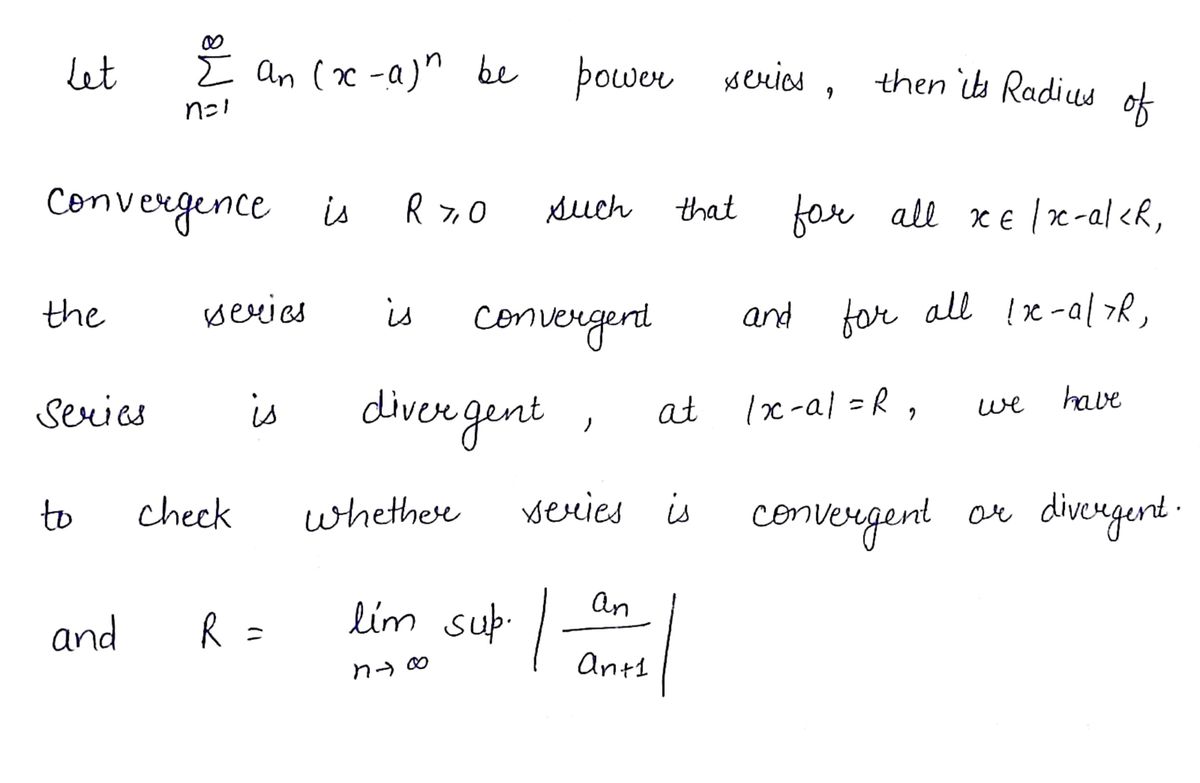 Let ∞∑n=1 an (x-a)^n be power series, then its Radius of
Convergence is R ⩾ 0 such that for all x ∈ |x-a|<R,
the series is convergent and for all |x-a|>R,
Series is divergent, at |x-a|=R, we have
to check whether series is convergent or divergent.
and R = lim n→∞ sup. | an / an+1 |